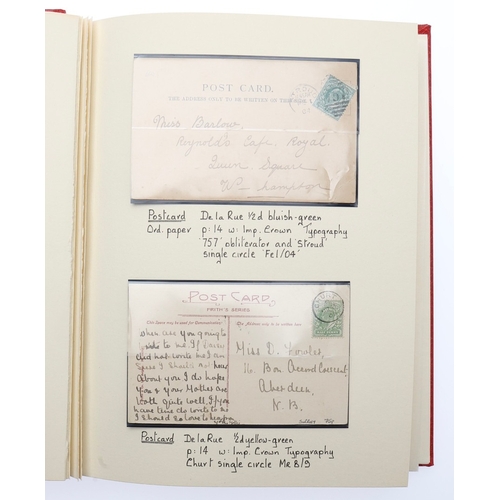 POST CARD.
THE ADDRESS ONLY TO BE WRITTEN ON THIS SIDE.
Miss Barlow
Reynold's Cafe, Royal,
Queen Square
W'hampton
Postcard De la Rue ½d bluish-green
Ord. paper p:14 w: Imp. Crown Typography
'757' obliterator and Stroud
single circle 'Fe1/04'
POST CARD
FRITH'S SERIES
This Space may be used for Communication
The Address only to be written here
When are you going to
write to me If Daisy
did not write me I
I should not hear
About you I do hope
you & your Mother are
both quite well. If you
have time do write to me
I should so love to hear
Miss D. Fowler,
16 Bon Accord Crescent
Aberdeen
N.B.
Postcard De la Rue ½d yellow-green
p:14 w: Imp. Crown Typography
Churt single circle Mr 8/9